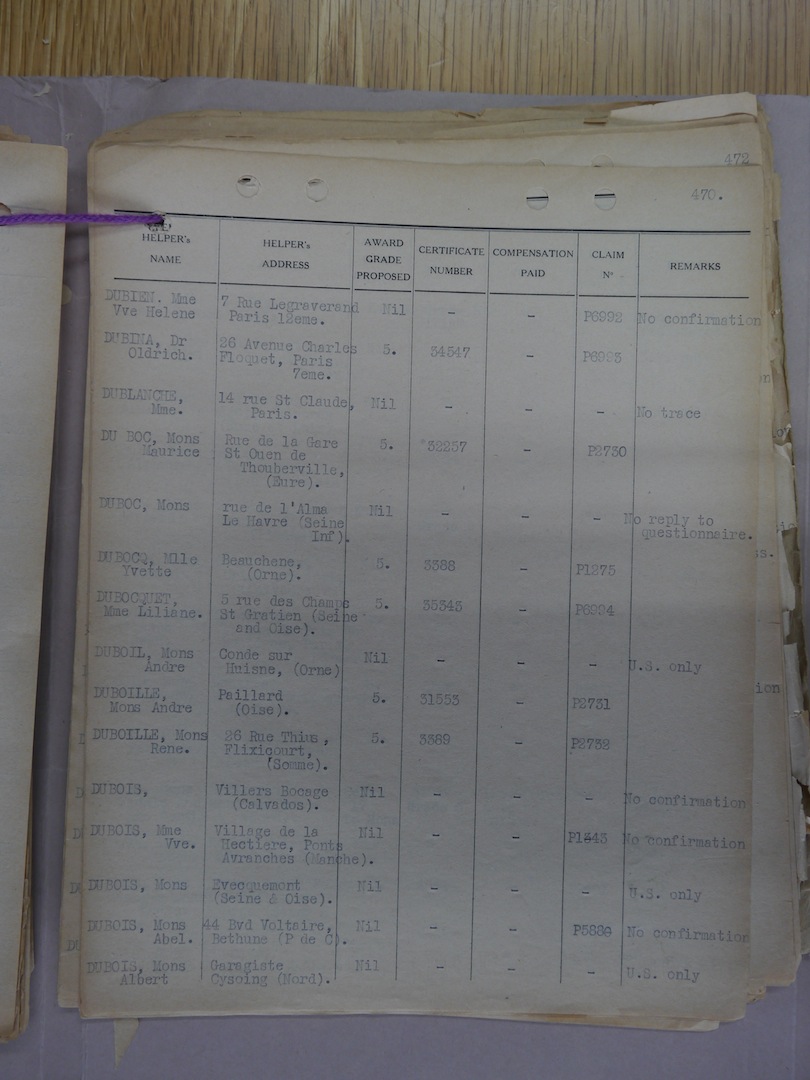 472
470.
HELPER's NAME HELPER's ADDRESS AWARD GRADE PROPOSED CERTIFICATE NUMBER COMPENSATION PAID CLAIM N° REMARKS
DUBIEN. Mme 7 Rue Legraverand Nil - - P6992 No confirmation
Vve Helene Paris 12eme.
DUBINA, Dr 26 Avenue Charles 5. 34547 - P6993
Oldrich. Floquet, Paris
7eme.
DUBLANCHE, 14 rue St Claude, Nil - - - No trace
Mme. Paris.
DU BOC, Mons Rue de la Gare 5. 32257 - P2730
Maurice St Ouen de
Thouberville,
(Eure).
DUBOC, Mons rue de l'Alma Nil - - - No reply to
Le Havre (Seine questionnaire.
Inf).
DUBOCQ, Mlle Beauchene, 5. 3388 - P1275
Yvette (Orne).
DUBOCQUET, 5 rue des Champs 5. 35343 - P6994
Mme Liliane. St Gratien (Seine
and Oise).
DUBOIL, Mons Conde sur Nil - - - U.S. only
Andre Huisne, (Orne)
DUBOILLE, Paillard 5. 31553 - P2731
Mons Andre (Oise).
DUBOILLE, Mons 26 Rue Thius, 5. 3389 - P2732
Rene. Flixicourt,
(Somme).
DUBOIS, Villers Bocage Nil - - - No confirmation
(Calvados).
DUBOIS, Mme Village de la Nil - - P1343 No confirmation
Vve. Hectiere, Ponts
Avranches (Manche).
DUBOIS, Mons Evecquemont Nil - - - U.S. only
(Seine & Oise).
DUBOIS, Mons 44 Bvd Voltaire, Nil - - No confirmation
Abel. Bethune (P de C).
DUBOIS, Mons Garagiste Nil - - - U.S. only
Albert Cysoing (Nord).